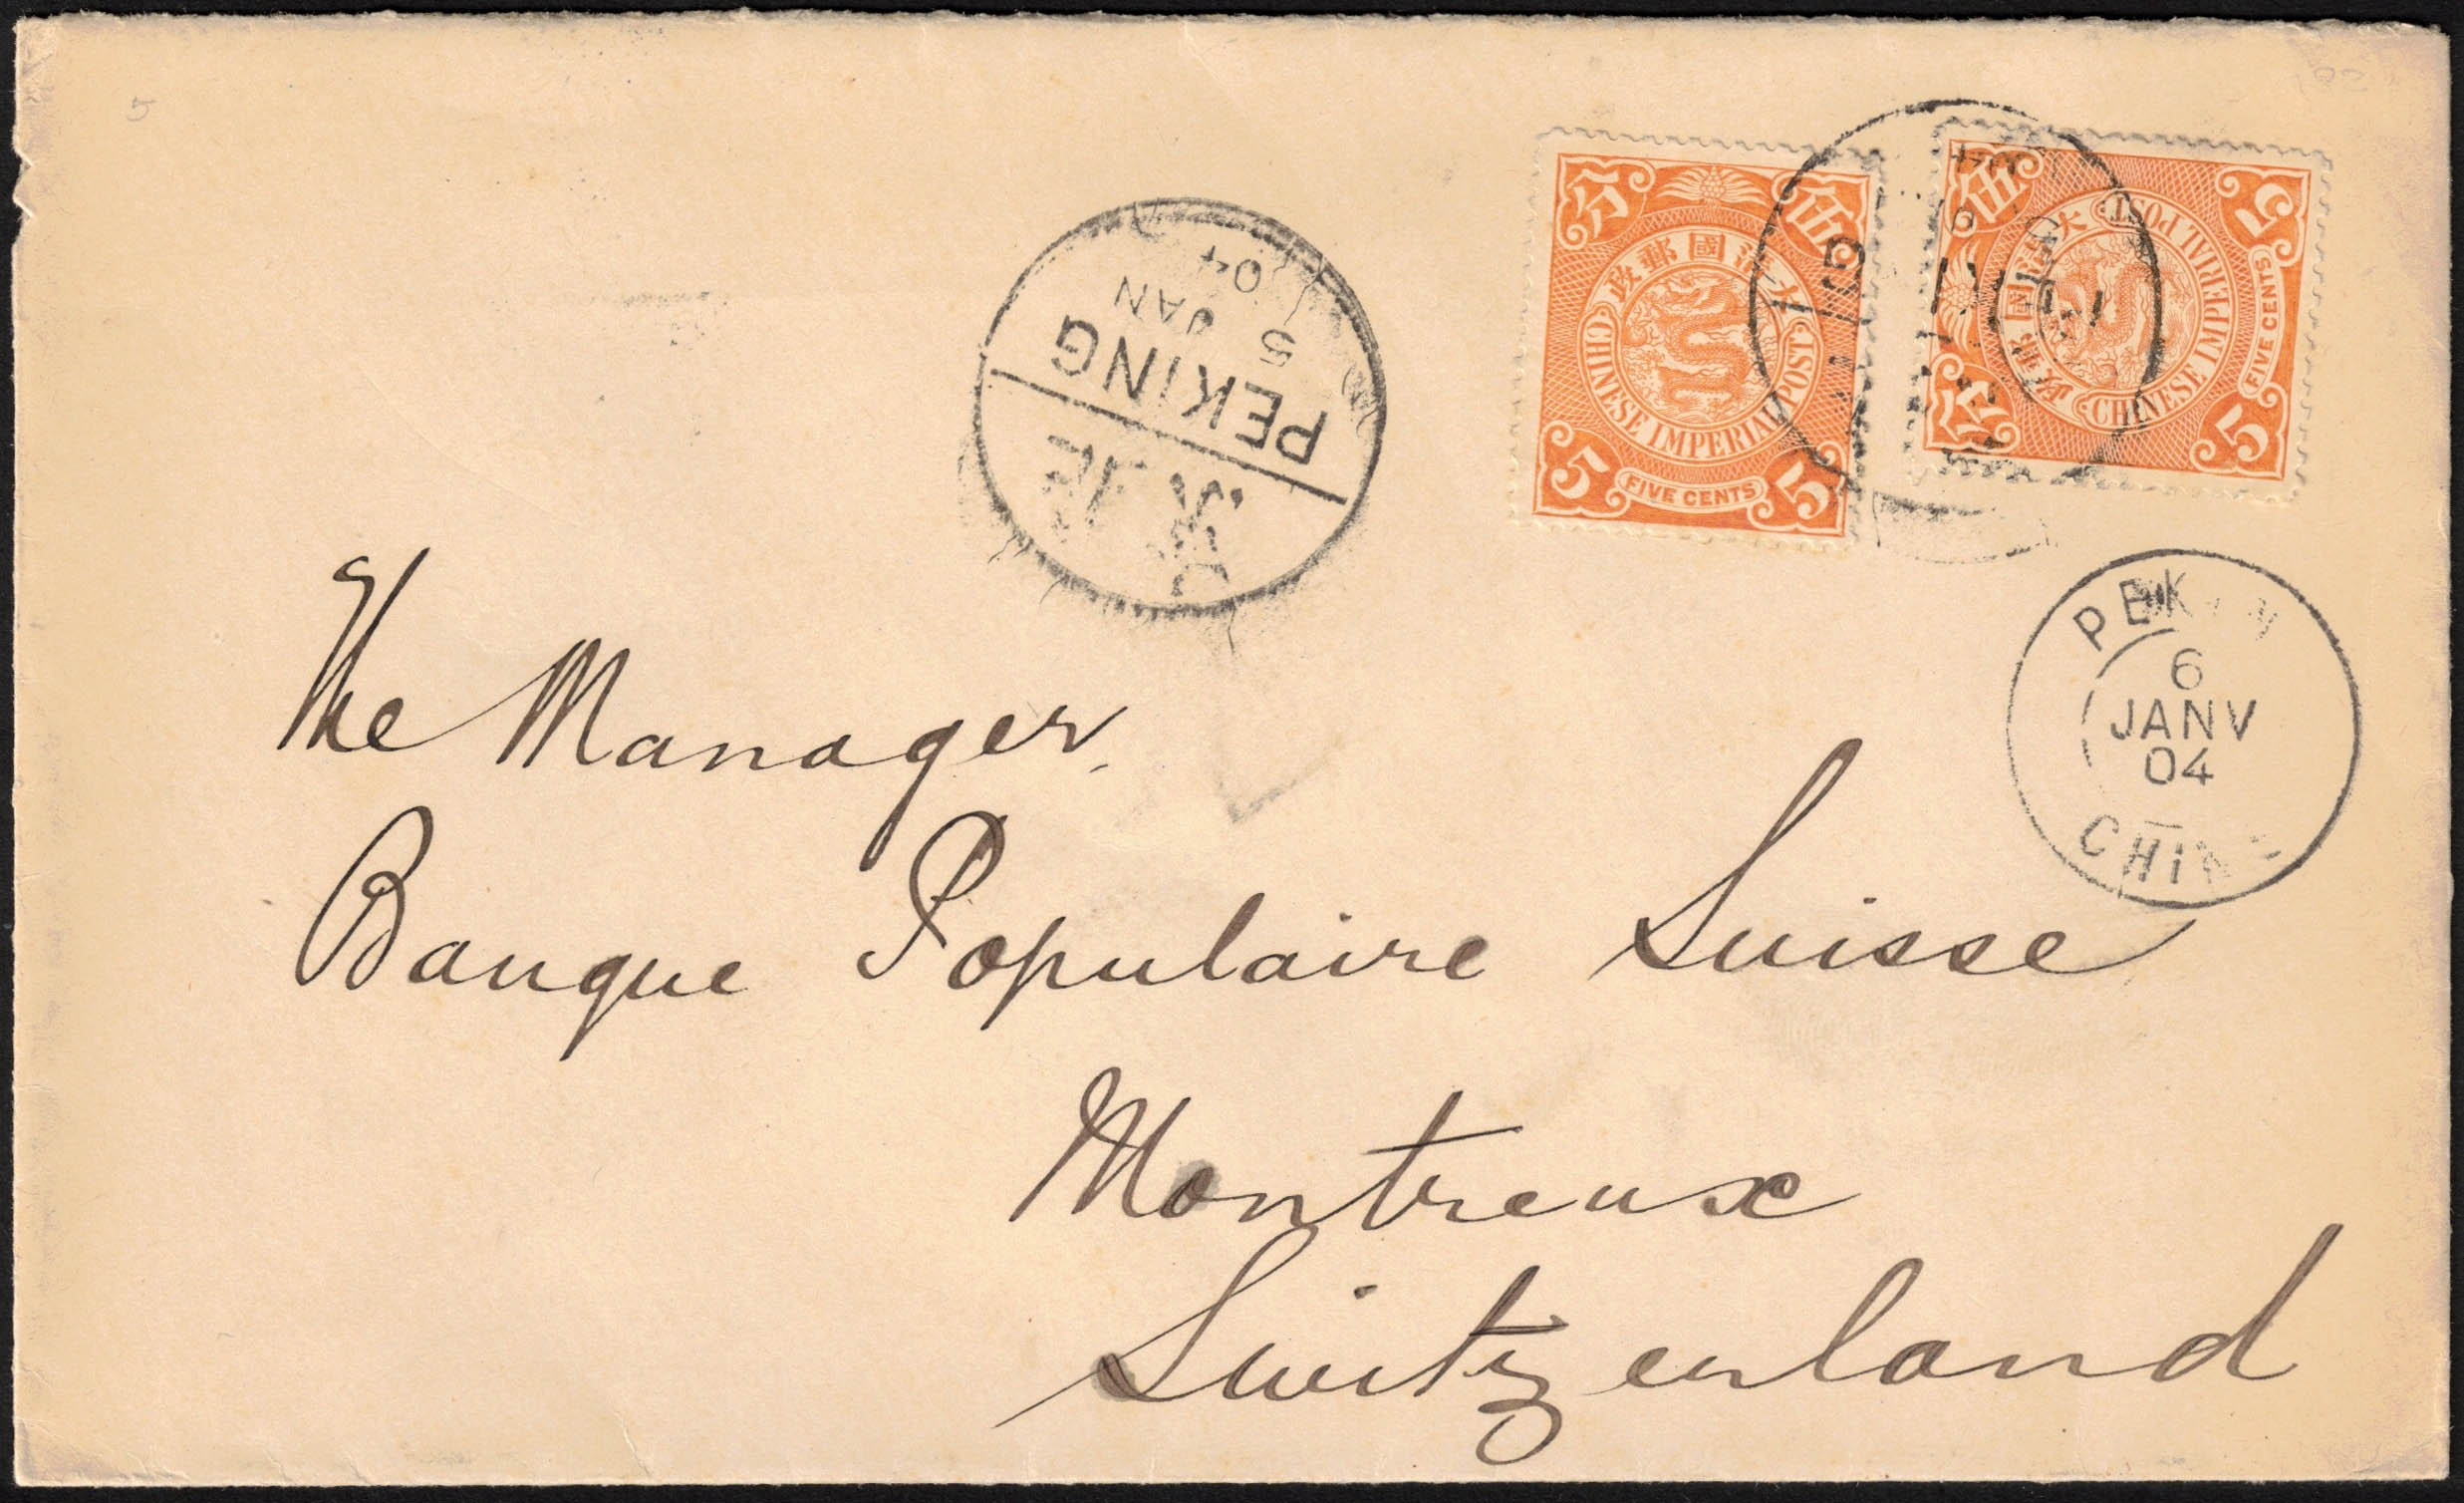 5
分 伍
大清國郵政
CHINESE IMPERIAL POST
5 FIVE CENTS 5
伍 5
大清國郵政
CHINESE IMPERIAL POST
分 FIVE CENTS 5
04
JAN
5
PEKING
北京
PEKIN
6
JANV
04
CHINE
The Manager,
Banque Populaire Suisse
Montreux
Switzerland